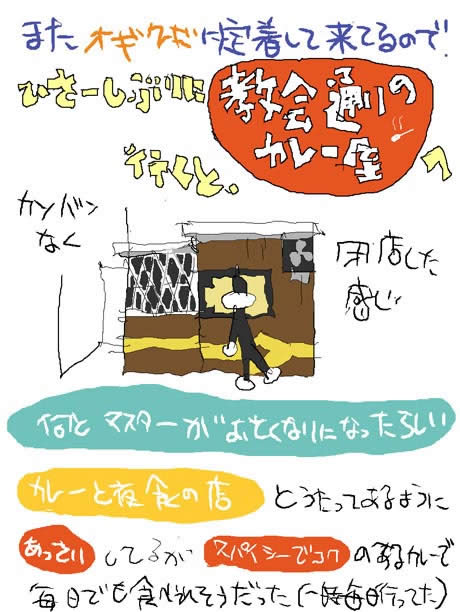 また オギクボに定着して来てるので
ひさーしぶりに
教会通りの
カレー屋
へ
行くと、
カンバン
なく
閉店した
感じ
何と マスターがお亡くなりになったらしい
カレーと夜食の店 とうたってあるように
あっさい してるが スパイシーでコクのあるカレーで
毎日でも食べられそうだった(一時毎日行ってた)